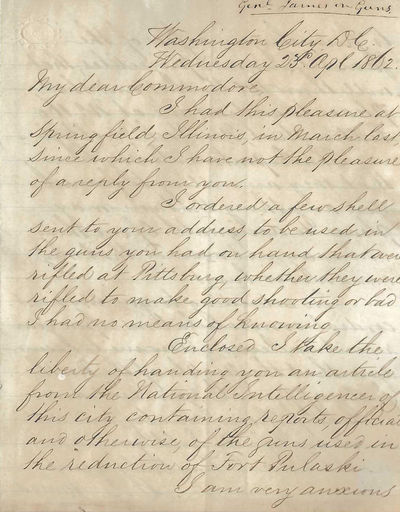 Genl James on Guns
Washington City D.C.
Wednesday 23d Apl 1862.
My dear Commodore,
I had this pleasure at
Springfield, Illinois, in March last,
since which I have not the pleasure
of a reply from you.
I ordered a few shell
sent to your address to be used in
the guns you had on hand that were
rifled at Pittsburg, whether they were
rifled to make good shooting or bad
I had no means of knowing.
Enclosed I take the
liberty of handing you an article
from the National Intelligencer of
this city containing reports, official
and otherwise, of the guns used in
the reduction of Fort Pulaski
I am very anxious